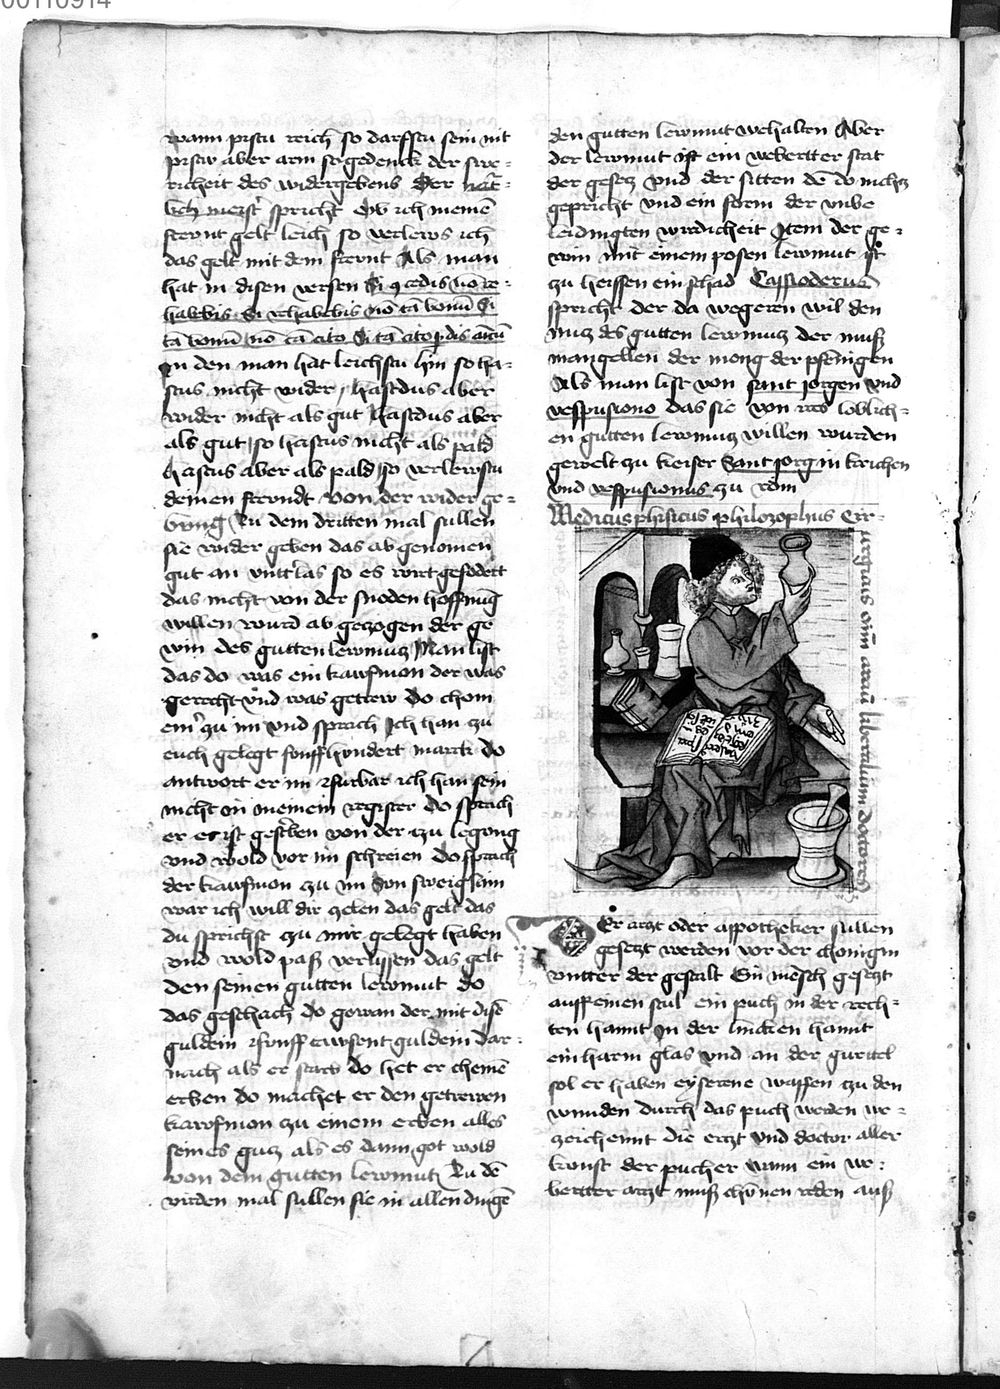 00110914
wann pistu reich so darfstu sein nit
pistu aber arm so gedenck der swe-
richeit des widergebens Der
meist spricht Ob ich meinē
frewnt gelt leich so verlews ich
das gelt mit dem frewnt Als man
hat in disen versen Si 9cedis nō re-
habebis Si rehabebis nō tā bonū Si
tā bonū nō tā cito Si tā cito pdis amicū
den man hat leichstu hin so ha-
stus nicht wider hastdus aber
wider nicht als gut hastdus aber
als gut so hastus nicht als pald
hastus aber als pald so verlewstu
deinen frewndt Von der wider ge-
bung Zu dem dritten mal sullen
sie wider geben das ab genomen
gut an so es wirt gefodert
das nicht von der snoden hoffnūg
willen wurd ab gezogen der ge
win des gutten lewmutz Man list
das do was ein kaufmon der was
gerecht vnd was getrew do chom
ein' zu im vnd sprach Ich han zu
euch gelegt fonffhondert marck do
antwort er im furbar ich han sein
nicht in meinem register do sprach
er er ist gestorben von der zu legong
vnd wold vor im schreien do sprach
der kaufmon zu im Son sweig
war ich will dir geben das gelt das
du sprichst zu mir gelegt haben
vnd wold pas verlissen das gelt
den seinen gutten lewmut do
das geschach do gewan der mit disē
guldein fonff tawsent guldein dar-
nach als er starb do het er cheinē
erben do machet er den getrewen
kawfmon zu einem erben alles
seines gutz als es dann got wold
von dem gutten lewmut Zu dē
virden mal sullen sie in allen dingē
den gutten lewmut behalten Aber
der lewmut ist ein bebertter stat
der gesetz vnd der sitten dē do nichtz
gepricht vnd ein form der vnbe
leidingten wirdicheit Item der ge-
win mit einem posen lewmut ist
zu heissen ein schad Cassioderus
spricht der da wegeren wil den
nutz des gutten lewmutz der muß
mangellen der meng der pfenigen
Als man list von sant jorgen vnd
vespusiono das sie von irs loblich-
en gutten lewmutz willen wurden
gewelt zu keiser Sant jorg in kirchen
vnd vespusionus zu rom
Medicus phisicus philozophus Cir-
urgicus omniū artiū liberalium doctores
Er arzt oder appotheker sullen
gesetzt werden vor der chonigin
vntter der gestalt Ein mēsch gesetzt
auff einen stul ein puch in der rech-
ten hannt In der lincken hannt
ein harm glas vnd an der gurttel
sol er haben eyserene waffen zu den
wunden durch das puch werden be-
zeichennt die erzt vnd doctor aller
kunst der pucher wann ein be-
bertter arzt muß chonen reden auß